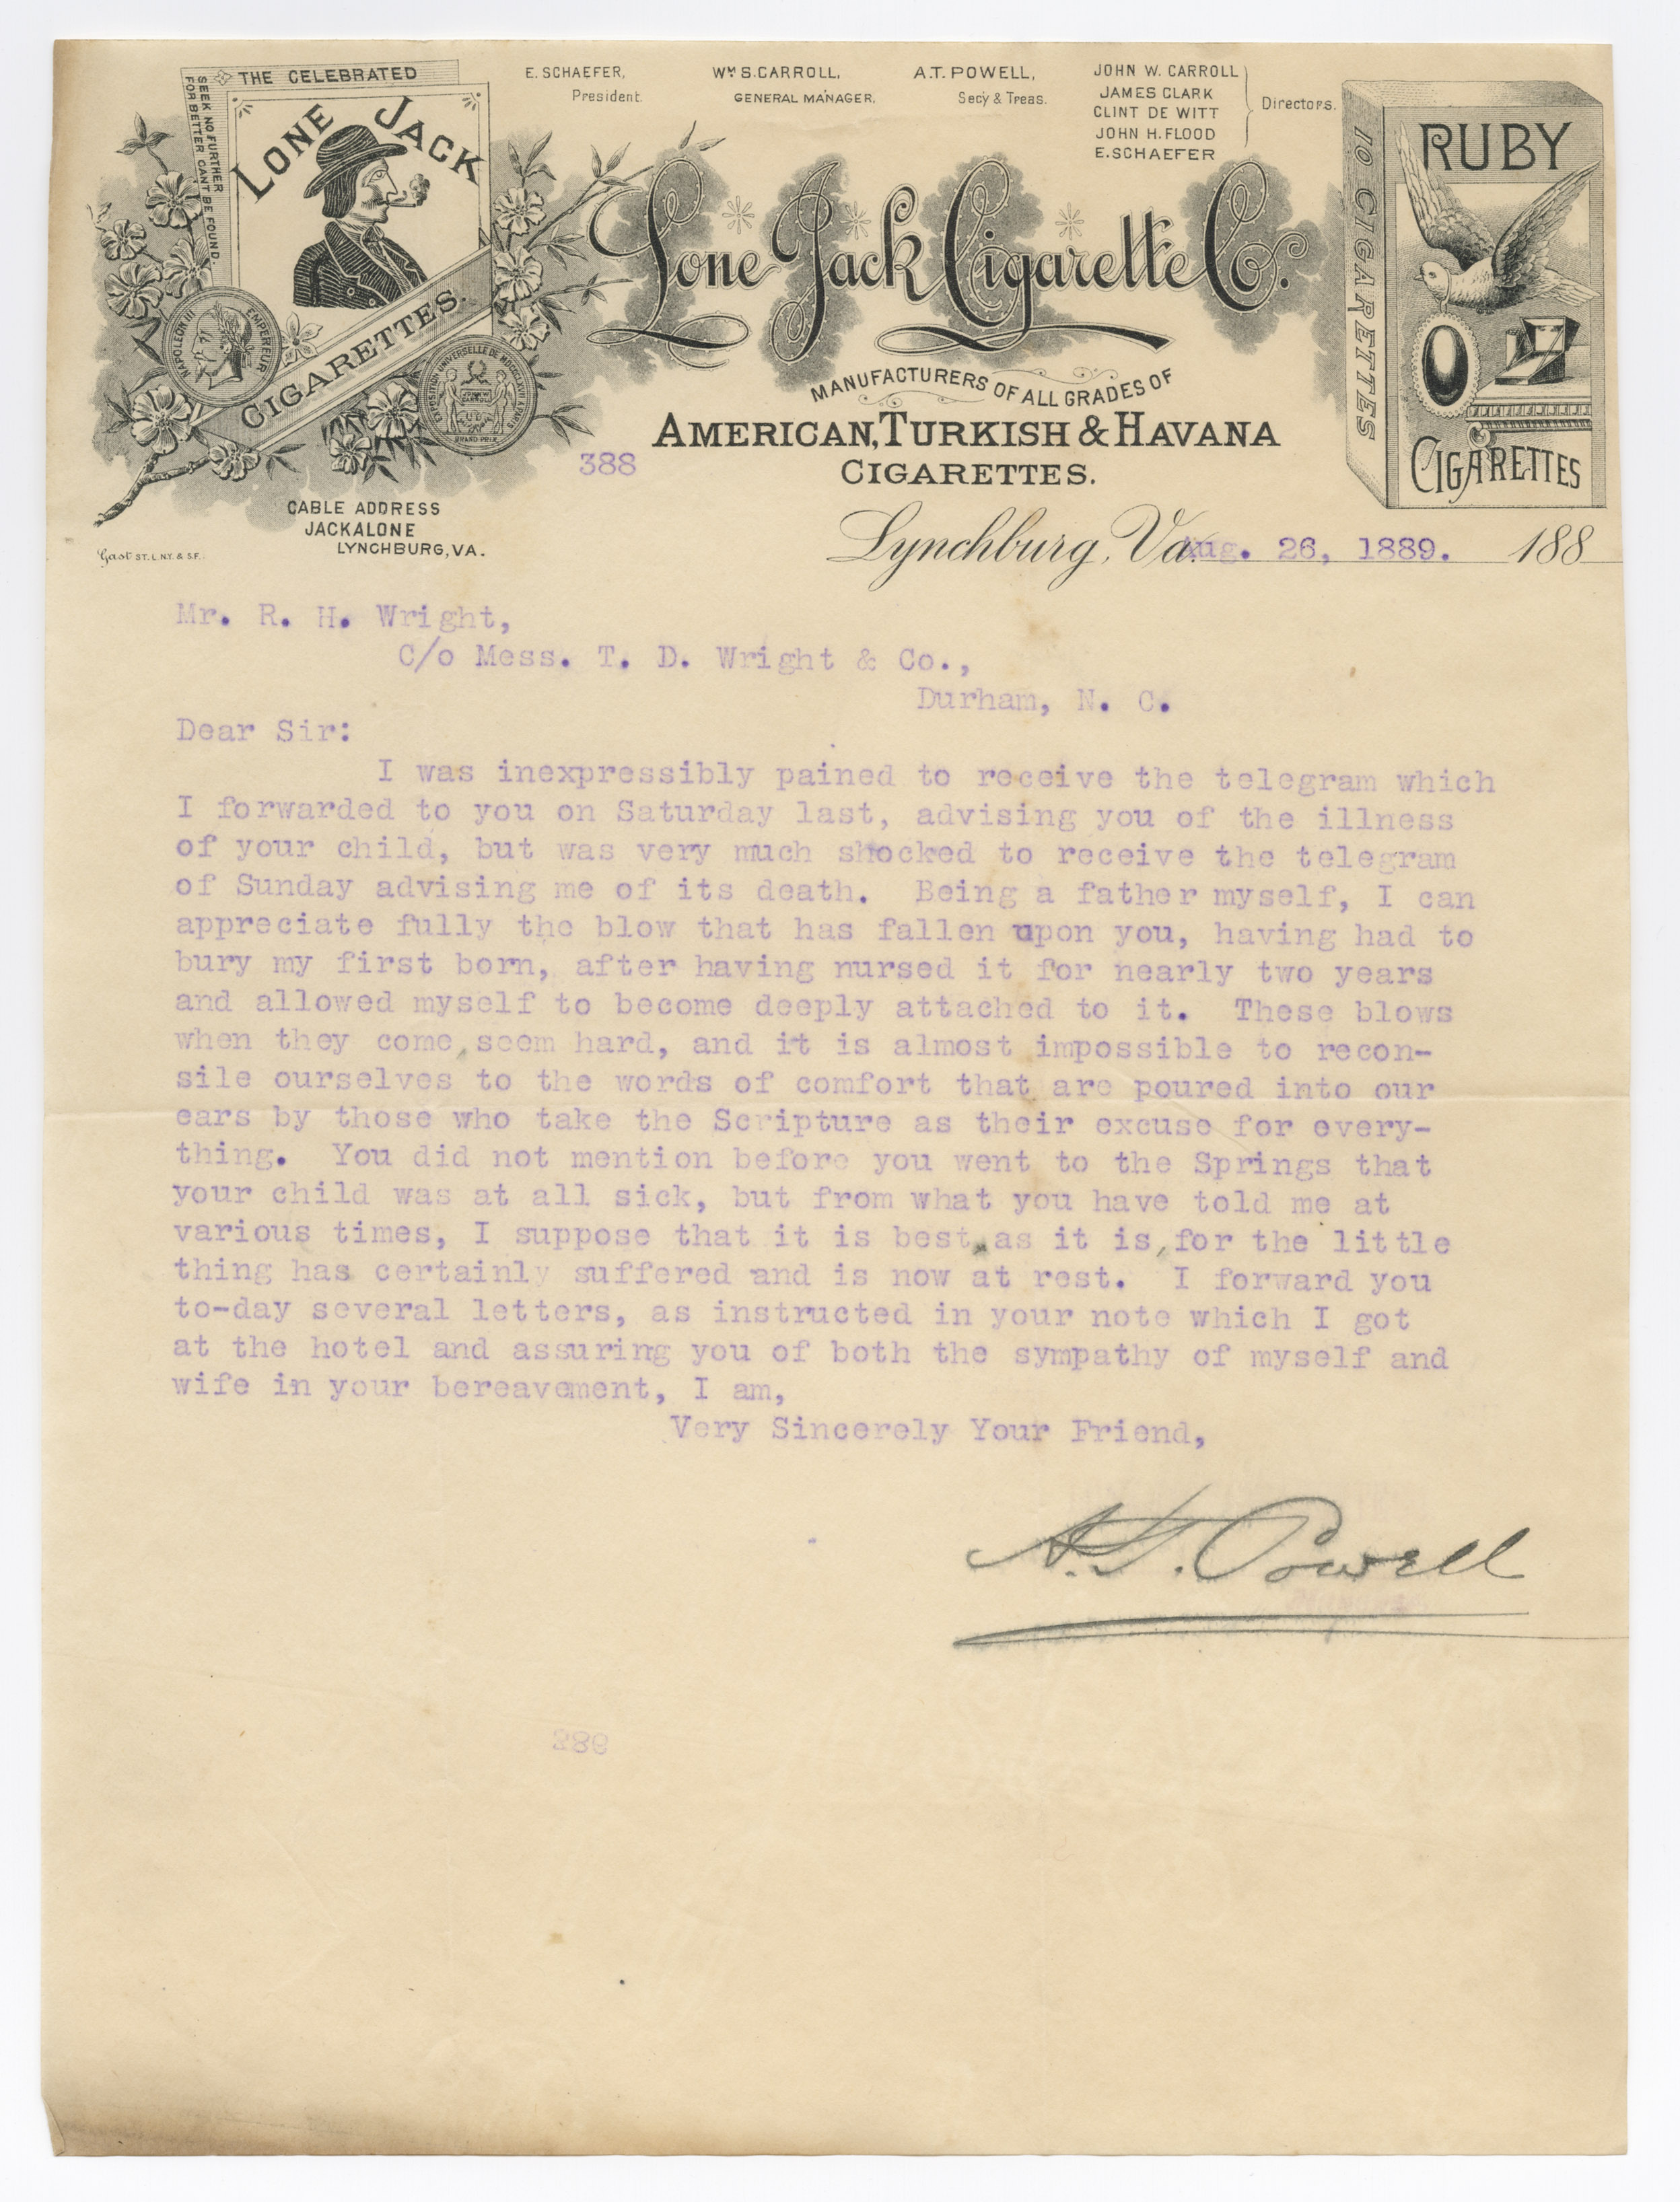 THE CELEBRATED
SEEK NO FURTHER
FOR BETTER CANT BE FOUND.
LONE JACK
CIGARETTES.
NAPOLEON III EMPEREUR
EXPOSITION UNIVERSELLE DE MDCCCLXVII A PARIS
GRAND PRIX
CABLE ADDRESS
JACKALONE
LYNCHBURG, VA.
Gast ST. L. N.Y. & S.F.
E. SCHAEFER,
President.
WM. S. CARROLL,
GENERAL MANAGER.
A.T. POWELL,
Sec'y & Treas.
JOHN W. CARROLL
JAMES CLARK
CLINT DE WITT
JOHN H. FLOOD
E. SCHAEFER
Directors.
Lone Jack Cigarette Co.
MANUFACTURERS OF ALL GRADES OF
AMERICAN, TURKISH & HAVANA
CIGARETTES.
10 CIGARETTES
RUBY
CIGARETTES
388
Lynchburg, Va. Aug. 26, 1889. 188
Mr. R. H. Wright,
C/o Mess. T. D. Wright & Co.,
Durham, N. C.
Dear Sir:
I was inexpressibly pained to receive the telegram which
I forwarded to you on Saturday last, advising you of the illness
of your child, but was very much shocked to receive the telegram
of Sunday advising me of its death. Being a father myself, I can
appreciate fully the blow that has fallen upon you, having had to
bury my first born, after having nursed it for nearly two years
and allowed myself to become deeply attached to it. These blows
when they come, seem hard, and it is almost impossible to recon-
sile ourselves to the words of comfort that are poured into our
ears by those who take the Scripture as their excuse for every-
thing. You did not mention before you went to the Springs that
your child was at all sick, but from what you have told me at
various times, I suppose that it is best, as it is, for the little
thing has certainly suffered and is now at rest. I forward you
to-day several letters, as instructed in your note which I got
at the hotel and assuring you of both the sympathy of myself and
wife in your bereavement, I am,
Very Sincerely Your Friend,
A. T. Powell